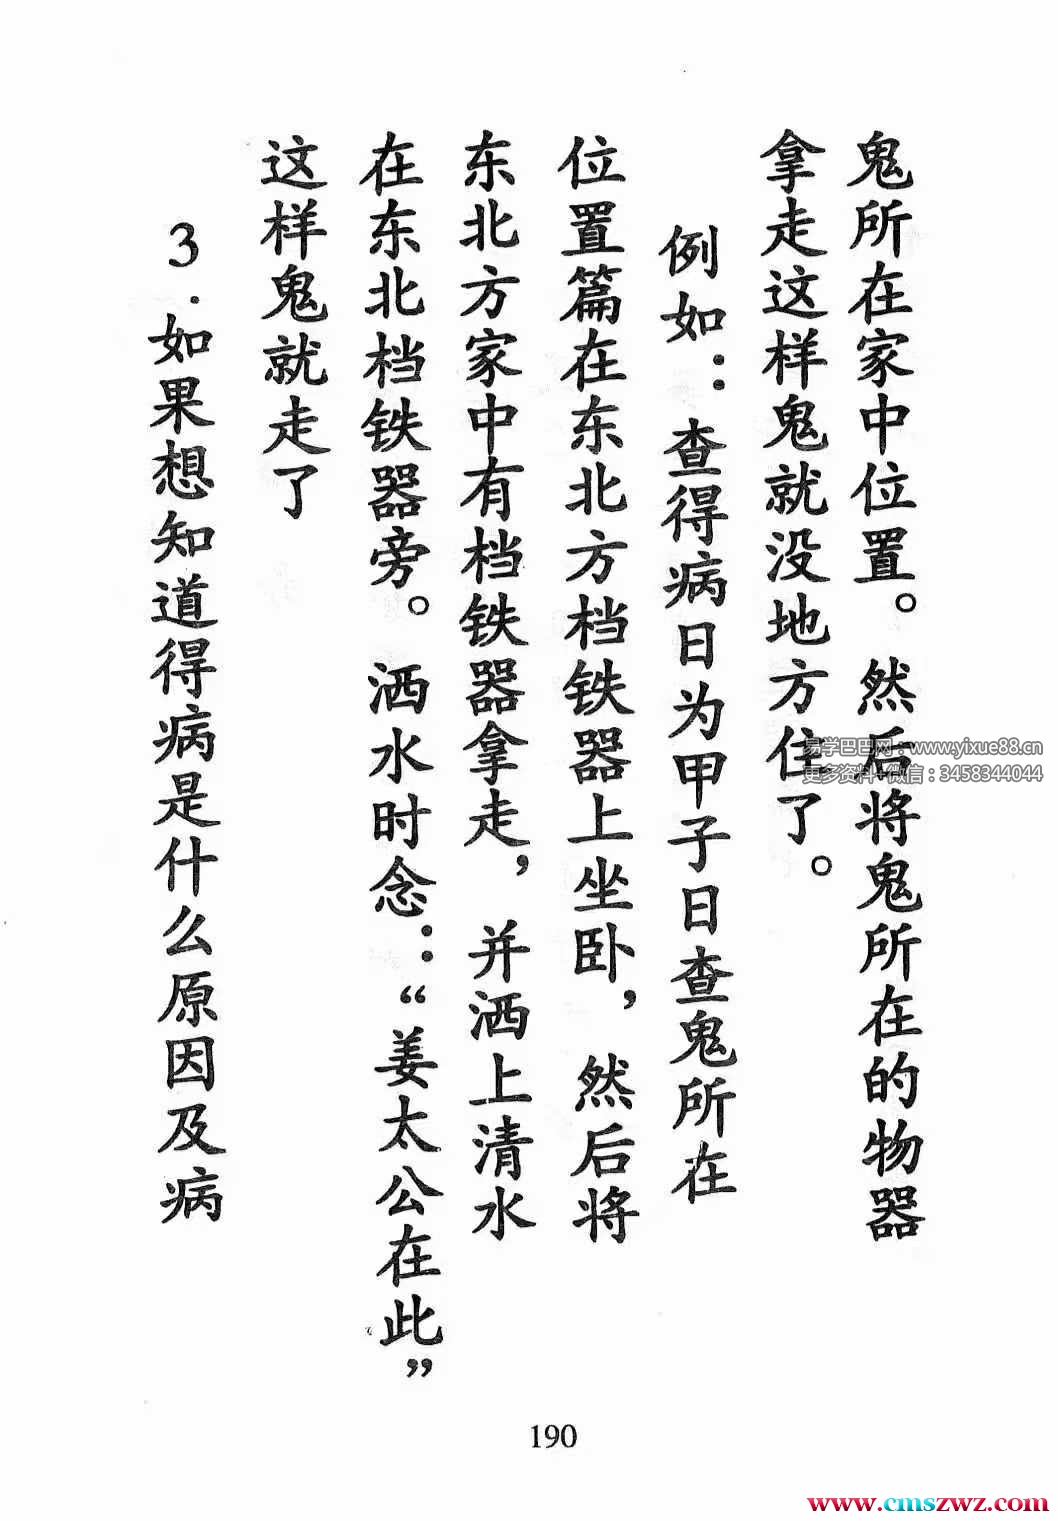 鬼所在家中位置。然后将鬼所在的物器
拿走这样鬼就没地方住了。
例如：查得病日为甲子日查鬼所在
位置篇在东北方档铁器上坐卧，然后将
东北方家中有档铁器拿走，并洒上清水
在东北档铁器旁。洒水时念：“姜太公在此”
这样鬼就走了
3.如果想知道得病是什么原因及病
易学巴巴网：www.yixue88.cn
更多资料+微信：3458344044
190
www.cmszwz.com